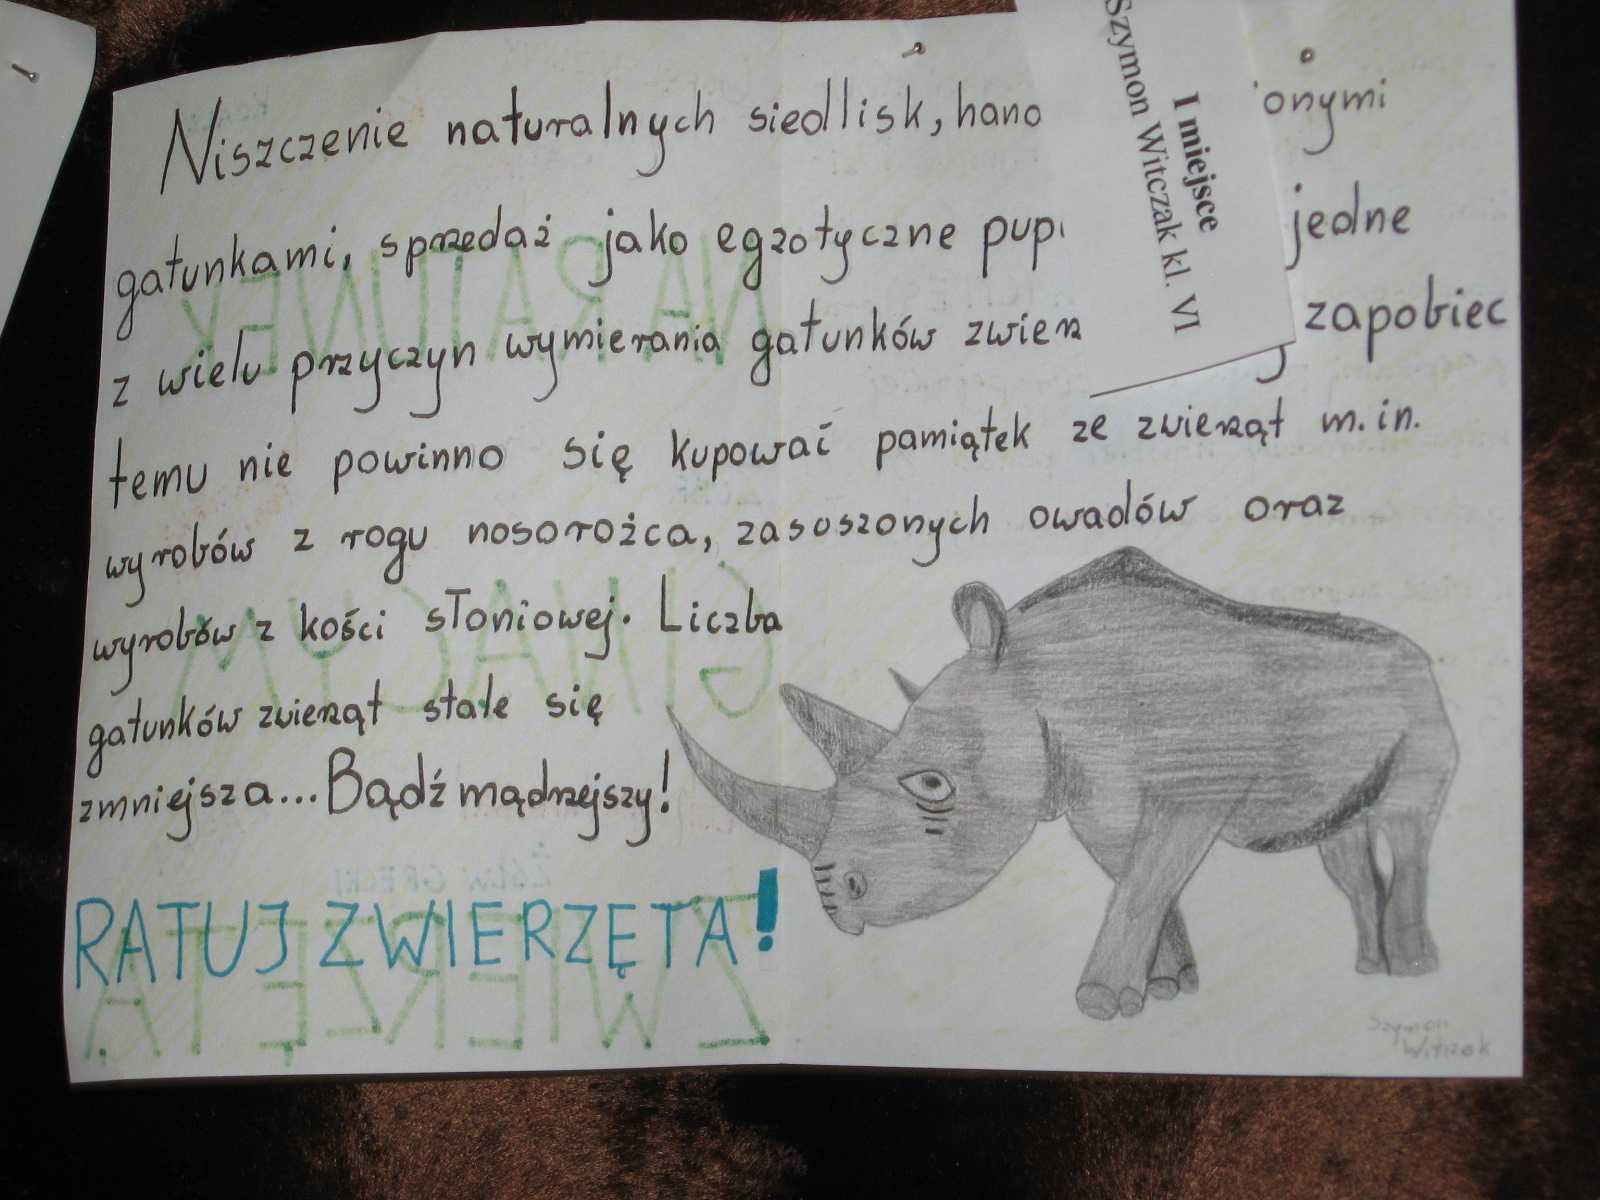 Niszczenie naturalnych siedlisk,
gatunkami, sprzedaż jako egzotyczne jedne
z wielu przyczyn wymierania gatunków zapobiec
temu nie powinno się kupować pamiątek ze zwierząt m.in.
wyrobów z rogu nosorożca, zasuszonych owadów oraz
wyrobów z kości słoniowej. Liczba
gatunków zwierząt stale się
zmniejsza... Bądź mądrzejszy!
RATUJ ZWIERZĘTA!
I miejsce
Szymon Witczak kl. VI
NA RATUNEK
GINĄCYM
ZWIERZĘTA
ŻÓŁW GRECKI
Szymon
Witczak